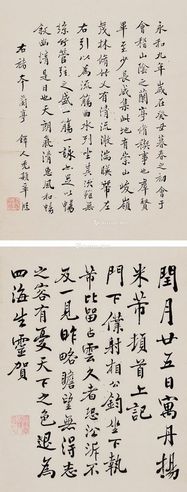 永和九年歲在癸丑暮春之初會于
會稽山陰之蘭亭脩禊事也群賢
畢至少長咸集此地有崇山峻嶺
茂林脩竹又有清流激湍映帶左
右引以為流觴曲水列坐其次雖無
絲竹管弦之盛一觴一詠亦足以暢
叙幽情是日也天朗氣清惠風和暢
閏月廿五日寓丹楊
米芾頓首上記
門下僕射相公鈞坐下執
芾比留占雲久者恐江漲不
及見昨瞻望無得志
之容有憂天下之色退為
四海生靈賀